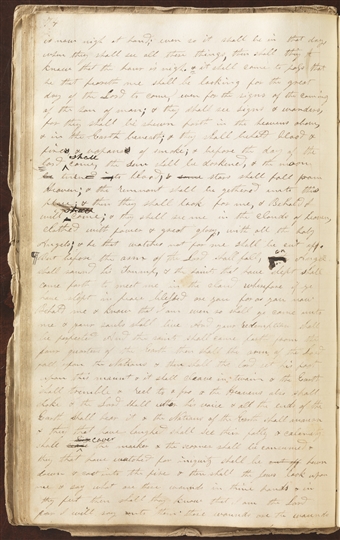 is now nigh at hand; even so it shall be in that day
when they shall see all these things, then shall they
know that the hour is nigh & it shall come to pass that
he that feareth me shall be looking for the great
day of the Lord to come, even for the signs of the coming
of the son of man; & they shall see signs & wonders,
for they shall be shown forth in the heavens above,
& in the Earth beneath; & they shall behold blood &
fire & vapours of smoke; & before the day of the
Lord shall come, the sun shall be darkened, & the moon
be turned into blood, & some stars shall fall from
Heaven; & the remnant shall be gathered unto this
place; & then they shall look for me, & Behold I
will come; & they shall see me in the clouds of heaven,
clothed with power & great glory, with all the holy
Angels; & he that watches not for me shall be cut off
But before the arm of the Lord shall fall, an Angel
shall sound his Trump, & the saints that have slept shall
come forth to meet me in the cloud wherefore if ye
have slept in peace blessed are you for as you now
behold me & know that I am even so shall ye come unto
me & your souls shall live and your redemption shall
be perfected & the saints shall come forth from the
four quarters of the Earth then shall the arm of the Lord
fall upon the nations & then shall the Lord set his foot
upon this mount & it shall cleave in twain & the Earth
shall tremble & reel to & fro & the Heavens also shall
shake & the Lord shall utter his voice & all the ends of the
Earth shall hear it & the nations of the Earth shall mourn
& they that have laughed shall see their folly & calamity
shall cover the mocker & the scorner shall be consumed &
they that have watched for iniquity shall be hewn
down & cast into the fire & then shall the Jews look upon
me & say what are these wounds in thine hands & in
thy feet then shall they know that I am the Lord
for I will say unto them these wounds are the wounds